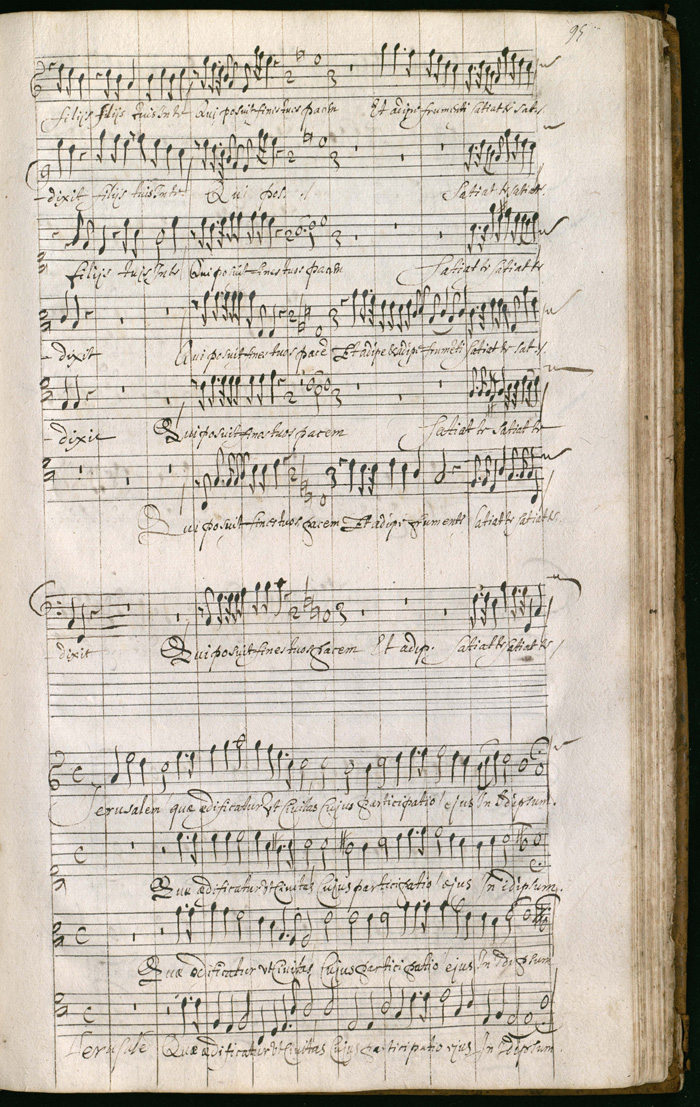 95
filijs filijs tuis In te Qui posuit fines tuos pacem Et adipe frumenti satiat te sati
dixit filijs tuis In te Qui pos.
Satiat te satiat te
filijs tuis In te Qui posuit fines tuos pacem Satiat te satiat te
dixit Qui posuit fines tuos pace Et adipe & adipe frumeti satiat te sat te
dixit Qui posuit fines tuos pacem Satiat te satiat te
Qui posuit fines tuos pacem Et adipe frumenti satiat te satiat te
dixit Qui posuit fines tuos pacem Et adip. satiat te satiat te
Jerusalem quæ ædificatur Vt Civitas Cujus participatio ejus In Idipsum.
Quæ ædificatur Vt Civitas Cujus participatio ejus In idipsum.
Quæ ædificatur Vt Civitas Cujus participatio ejus In Idipsum
Jerusale Quæ ædificatur Vt Civitas Cujus participatio ejus In Idipsum